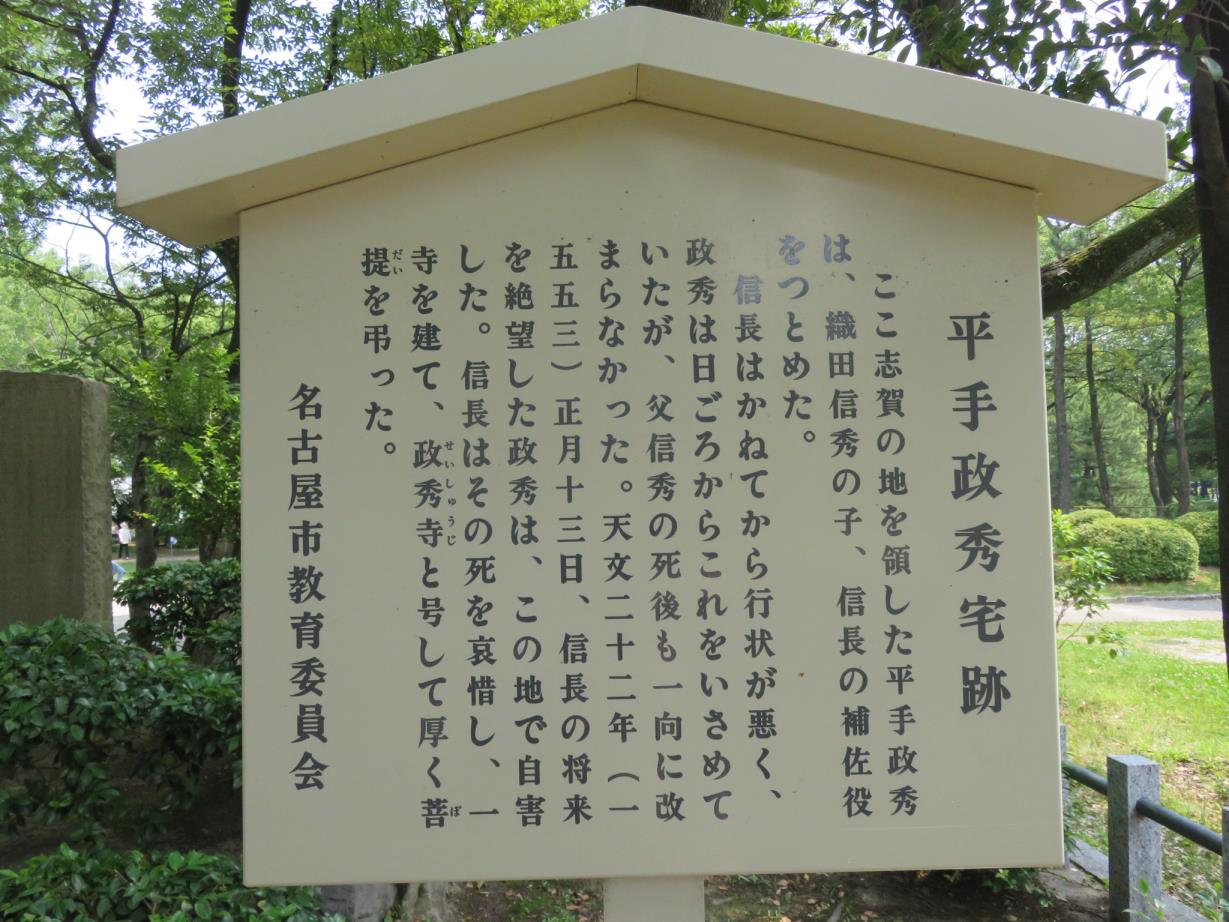 平手政秀宅跡
ここ志賀の地を領した平手政秀
は、織田信秀の子、信長の補佐役
をつとめた。
信長はかねてから行状が悪く、
政秀は日ごろからこれをいさめて
いたが、父信秀の死後も一向に改
まらなかった。天文二十二年（一
五五三）正月十三日、信長の将来
を絶望した政秀は、この地で自害
した。信長はその死を哀惜し、一
寺を建て、政秀寺と号して厚く菩
提を弔った。
名古屋市教育委員会
せいしゅうじ
ぼ
だい